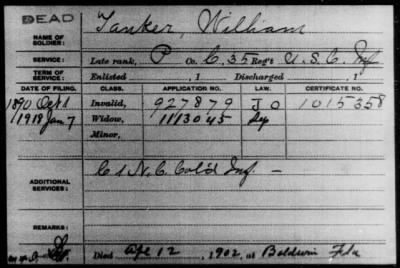 DEAD
NAME OF SOLDIER: Yanker, William
SERVICE: Late rank, P Co. C, 35 Reg't U.S.C. Inf
TERM OF SERVICE: Enlisted , 1 Discharged , 1
DATE OF FILING. CLASS. APPLICATION NO. LAW. CERTIFICATE NO.
1890 Oct 1 Invalid, 927879 J O 1015358
1918 Jan 7 Widow, 1113045
Minor,
ADDITIONAL SERVICES: C 1 N.C. Col'd Inf. —
REMARKS:
Died Apr 12, 1902, at Baldwin Fla